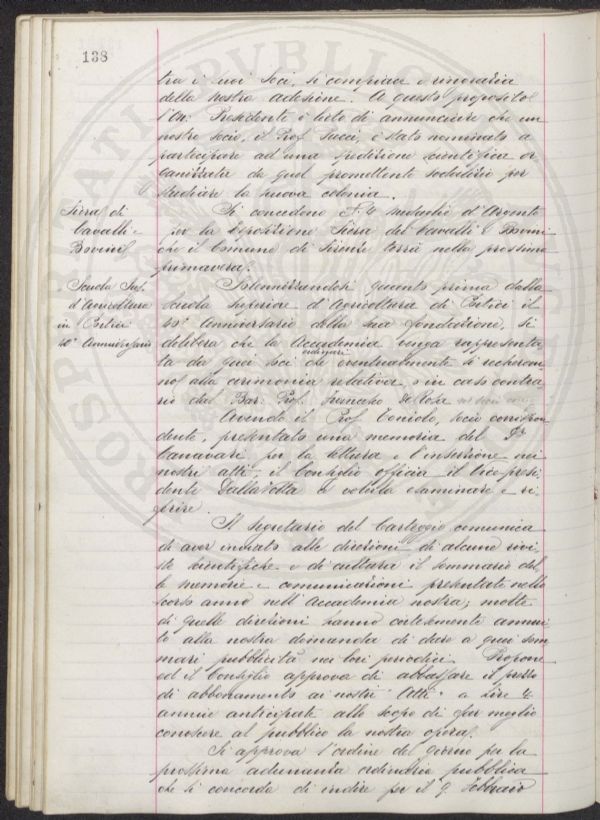 138
tra i suoi soci, si compiace e ringrazia
della nostra adesione. A questo proposito
l'On: Presidente è lieto di annunciare che un
nostro socio, il Prof. Pucci, è stato nominato a
partecipare ad una spedizione scientifica or
ganizzata da quel promettente sodalizio per
studiare la nuova colonia.
Fiera di
Cavalli e
Bovini
Si concedono N. 4 medaglie d'Argento
per la Esposizione Fiera dei Cavalli e Bovini
che il Comune di Firenze terrà nella prossima
primavera.
Scuola Sup.
d'Agricoltura
in Portici
40° Anniversario
Solennizzandosi quanto prima dalla
Scuola Superiore d'Agricoltura di Portici il
40° Anniversario della sua fondazione, si
delibera che la Accademia venga rappresenta
ta da quei soci ordinari che eventualmente si recheran
no alla cerimonia relativa, o in caso contra
rio dal Bar: Prof. Francesco De Rosa
Avendo il Prof. Toniolo, socio corrispon
dente, presentato una memoria del Dr
Canavari per la lettura e l'inserzione nei
nostri atti, il Consiglio officia il Vice presi
dente Dalla Volta a volerla esaminare e ri
ferire.
Il Segretario del Carteggio comunica
di aver inviato alle direzioni di alcune rivi
ste scientifiche e di cultura il sommario del
le memorie e comunicazioni presentate nello
scorso anno nell'Accademia nostra; molte
di quelle direzioni hanno cortesemente annui
to alla nostra domanda di dare a quei som
mari pubblicità nei loro periodici. Propone
ed il Consiglio approva di abbassare il prezzo
di abbonamento ai nostri "Atti" a Lire 4
annue anticipate allo scopo di far meglio
conoscere al pubblico la nostra opera.
Si approva l'ordine del giorno per la
prossima adunanza ordinaria pubblica
che si concorda di indire per il 9 Febbraio